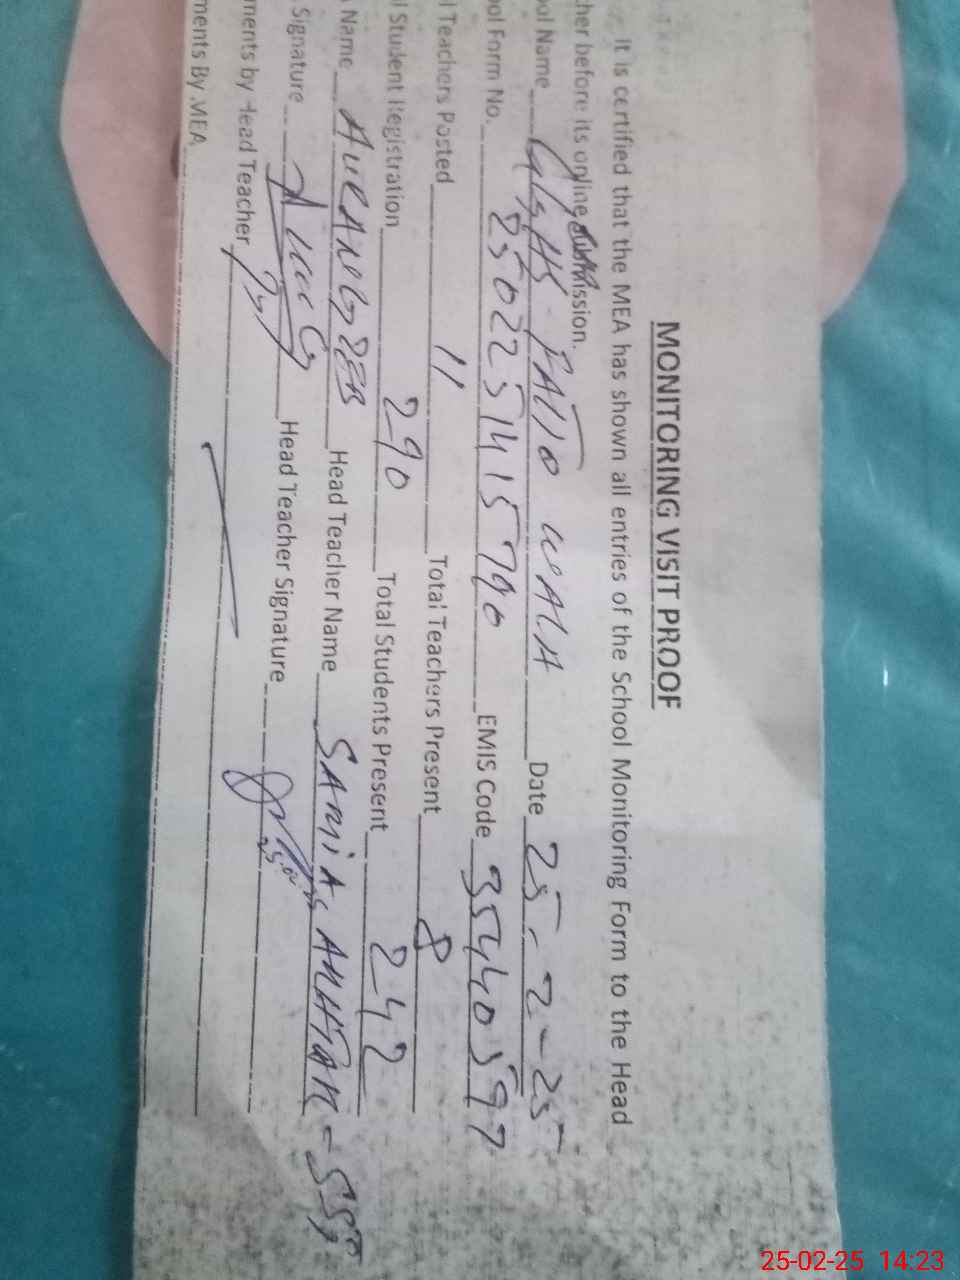 MONITORING VISIT PROOF
It is certified that the MEA has shown all entries of the School Monitoring Form to the Head
cher before its online submission.
ool Name GGHS - Date 25-2-25
ool Form No. 25022514115790 EMIS Code 35440597
l Teachers Posted 11 Total Teachers Present 8
l Student Registration 290 Total Students Present 242
Name AURANGZEB Head Teacher Name SAMIA - SST
Signature Head Teacher Signature
ments by Head Teacher
ments By MEA
25-02-25 14:23